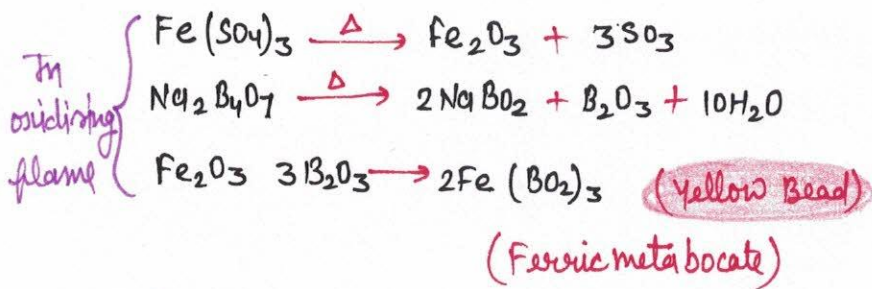 In oxidising flame
Fe(SO4)3 —Δ→ Fe2O3 + 3SO3
Na2B4O7 —Δ→ 2NaBO2 + B2O3 + 10H2O
Fe2O3 3B2O3 → 2Fe(BO2)3 (Yellow Bead)
(Ferric metabocate)